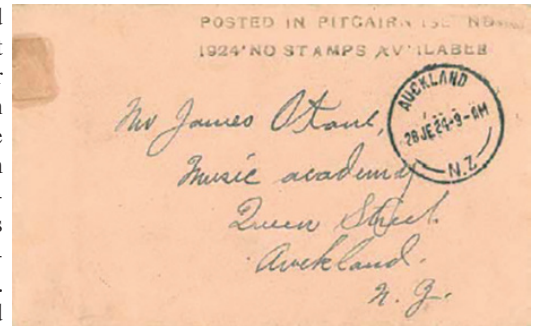 POSTED IN PITCAIRN ISL ND
1924 NO STAMPS AV ILABEB
AUCKLAND
28JE24-9-AM
N.Z.
Mr James
Music academy
Queen Street
Auckland.
N. Z.